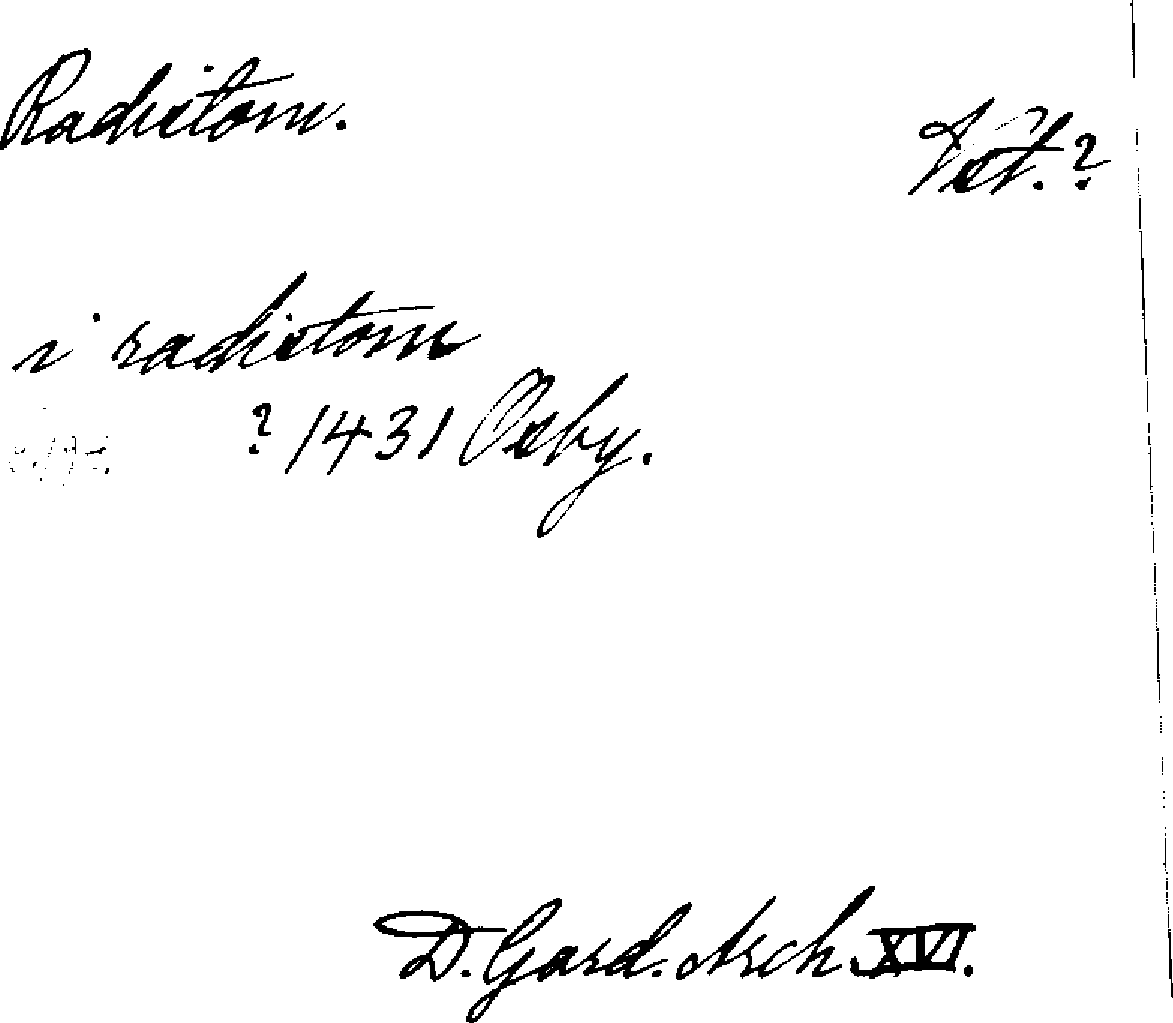 Radistom.
Vet.?
i radistom
? 1431 Osby.
D. Gard. Arch XVI.